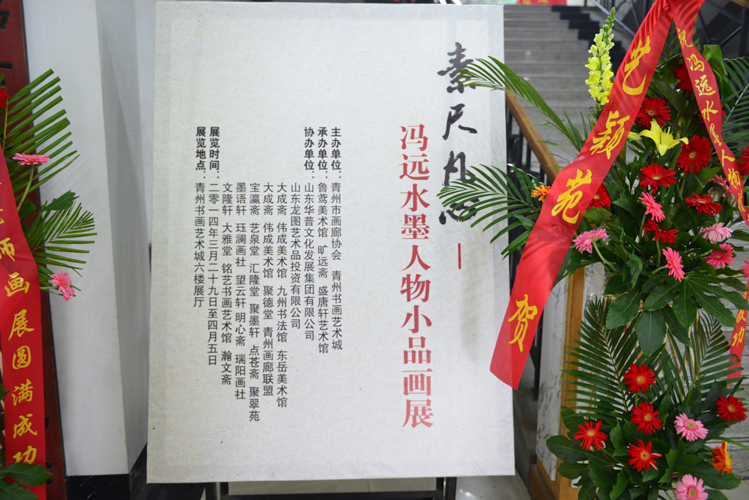 素尺凡心
冯远水墨人物小品画展
主办单位：青州市画廊协会 青州书画艺术城
承办单位：鲁鸢美术馆 旷远斋 盛唐轩艺术馆
协办单位：山东华普文化发展集团有限公司
山东龙图艺术品投资有限公司
大成斋 伟成美术馆 九州书法馆 东岳美术馆
大成斋 伟成美术馆 聚德堂 青州画廊联盟
宝瀛斋 艺泉堂 汇隆堂 聚墨轩 点苍斋 聚翠苑
墨语轩 珏澜画社 望云轩 明心斋 瑞阳画社
文隆轩 大雅堂 铭艺书画艺术馆 瀚文斋
展览时间：二零一四年三月二十九日至四月五日
展览地点：青州书画艺术城六楼展厅
艺颖苑 贺
冯远水墨人物
师画展圆满成功